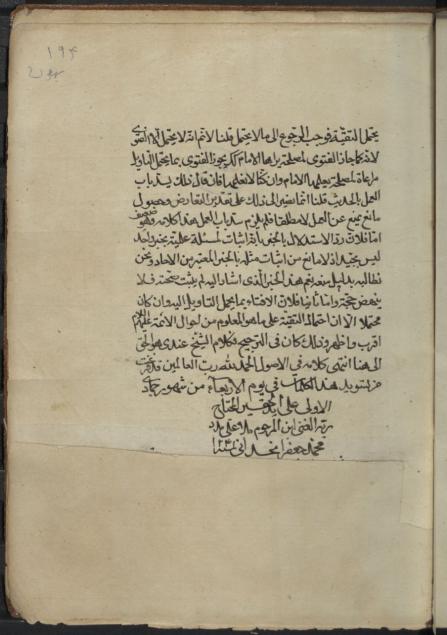 ١٩٤
يحمل التقية فوجب الرجوع الى ما لا يحتمل قلنا لا نم انه لا يحتمل الا الفتوى
لانه كما جاز الفتوى لمصلحة يراها الامام كك يجوز الفتوى بما يحتمل التاويل
مراعاة لمصلحة يعلمها الامام وان كنا لا نعلمها فان قال ذلك يسد باب
العمل بالحديث قلنا انما نصير الى ذلك على تقدير التعارض وحصول
مانع يمنع عن العمل لا مطلقا فلم يلزم سد باب العمل هذا كلامه وهو ضعيف
اما اولا فلان رد الاستدلال بالخبر بانه اثبات لمسئلة علمية بخبر واحد
ليس بجيد اذ لا مانع من اثبات مثله بالخبر المعتبر من الاحاد ونحن
نطالبه بدليل منعه نعم هذا الخبر الذى اشار اليه لم يثبت صحته فلا
ينهض حجة واما ثانيا فلان الافتاء بما يحتمل التاويل وان كان
محتملا الا ان احتمال التقية على ما هو المعلوم من احوال الائمة عليهم السلام
اقرب واظهر وذلك كاف فى الترجيح فكلام الشيخ عندى هو الحق
الى هنا انتهى كلامه فى الاصول الحمد لله رب العالمين قد فرغت
من تسويد هذه الكلمات فى يوم الاربعاء من شهور جمادى
الاولى على يد الحقير المحتاج
بربه الغنى ابن المرحوم
محمد جعفر